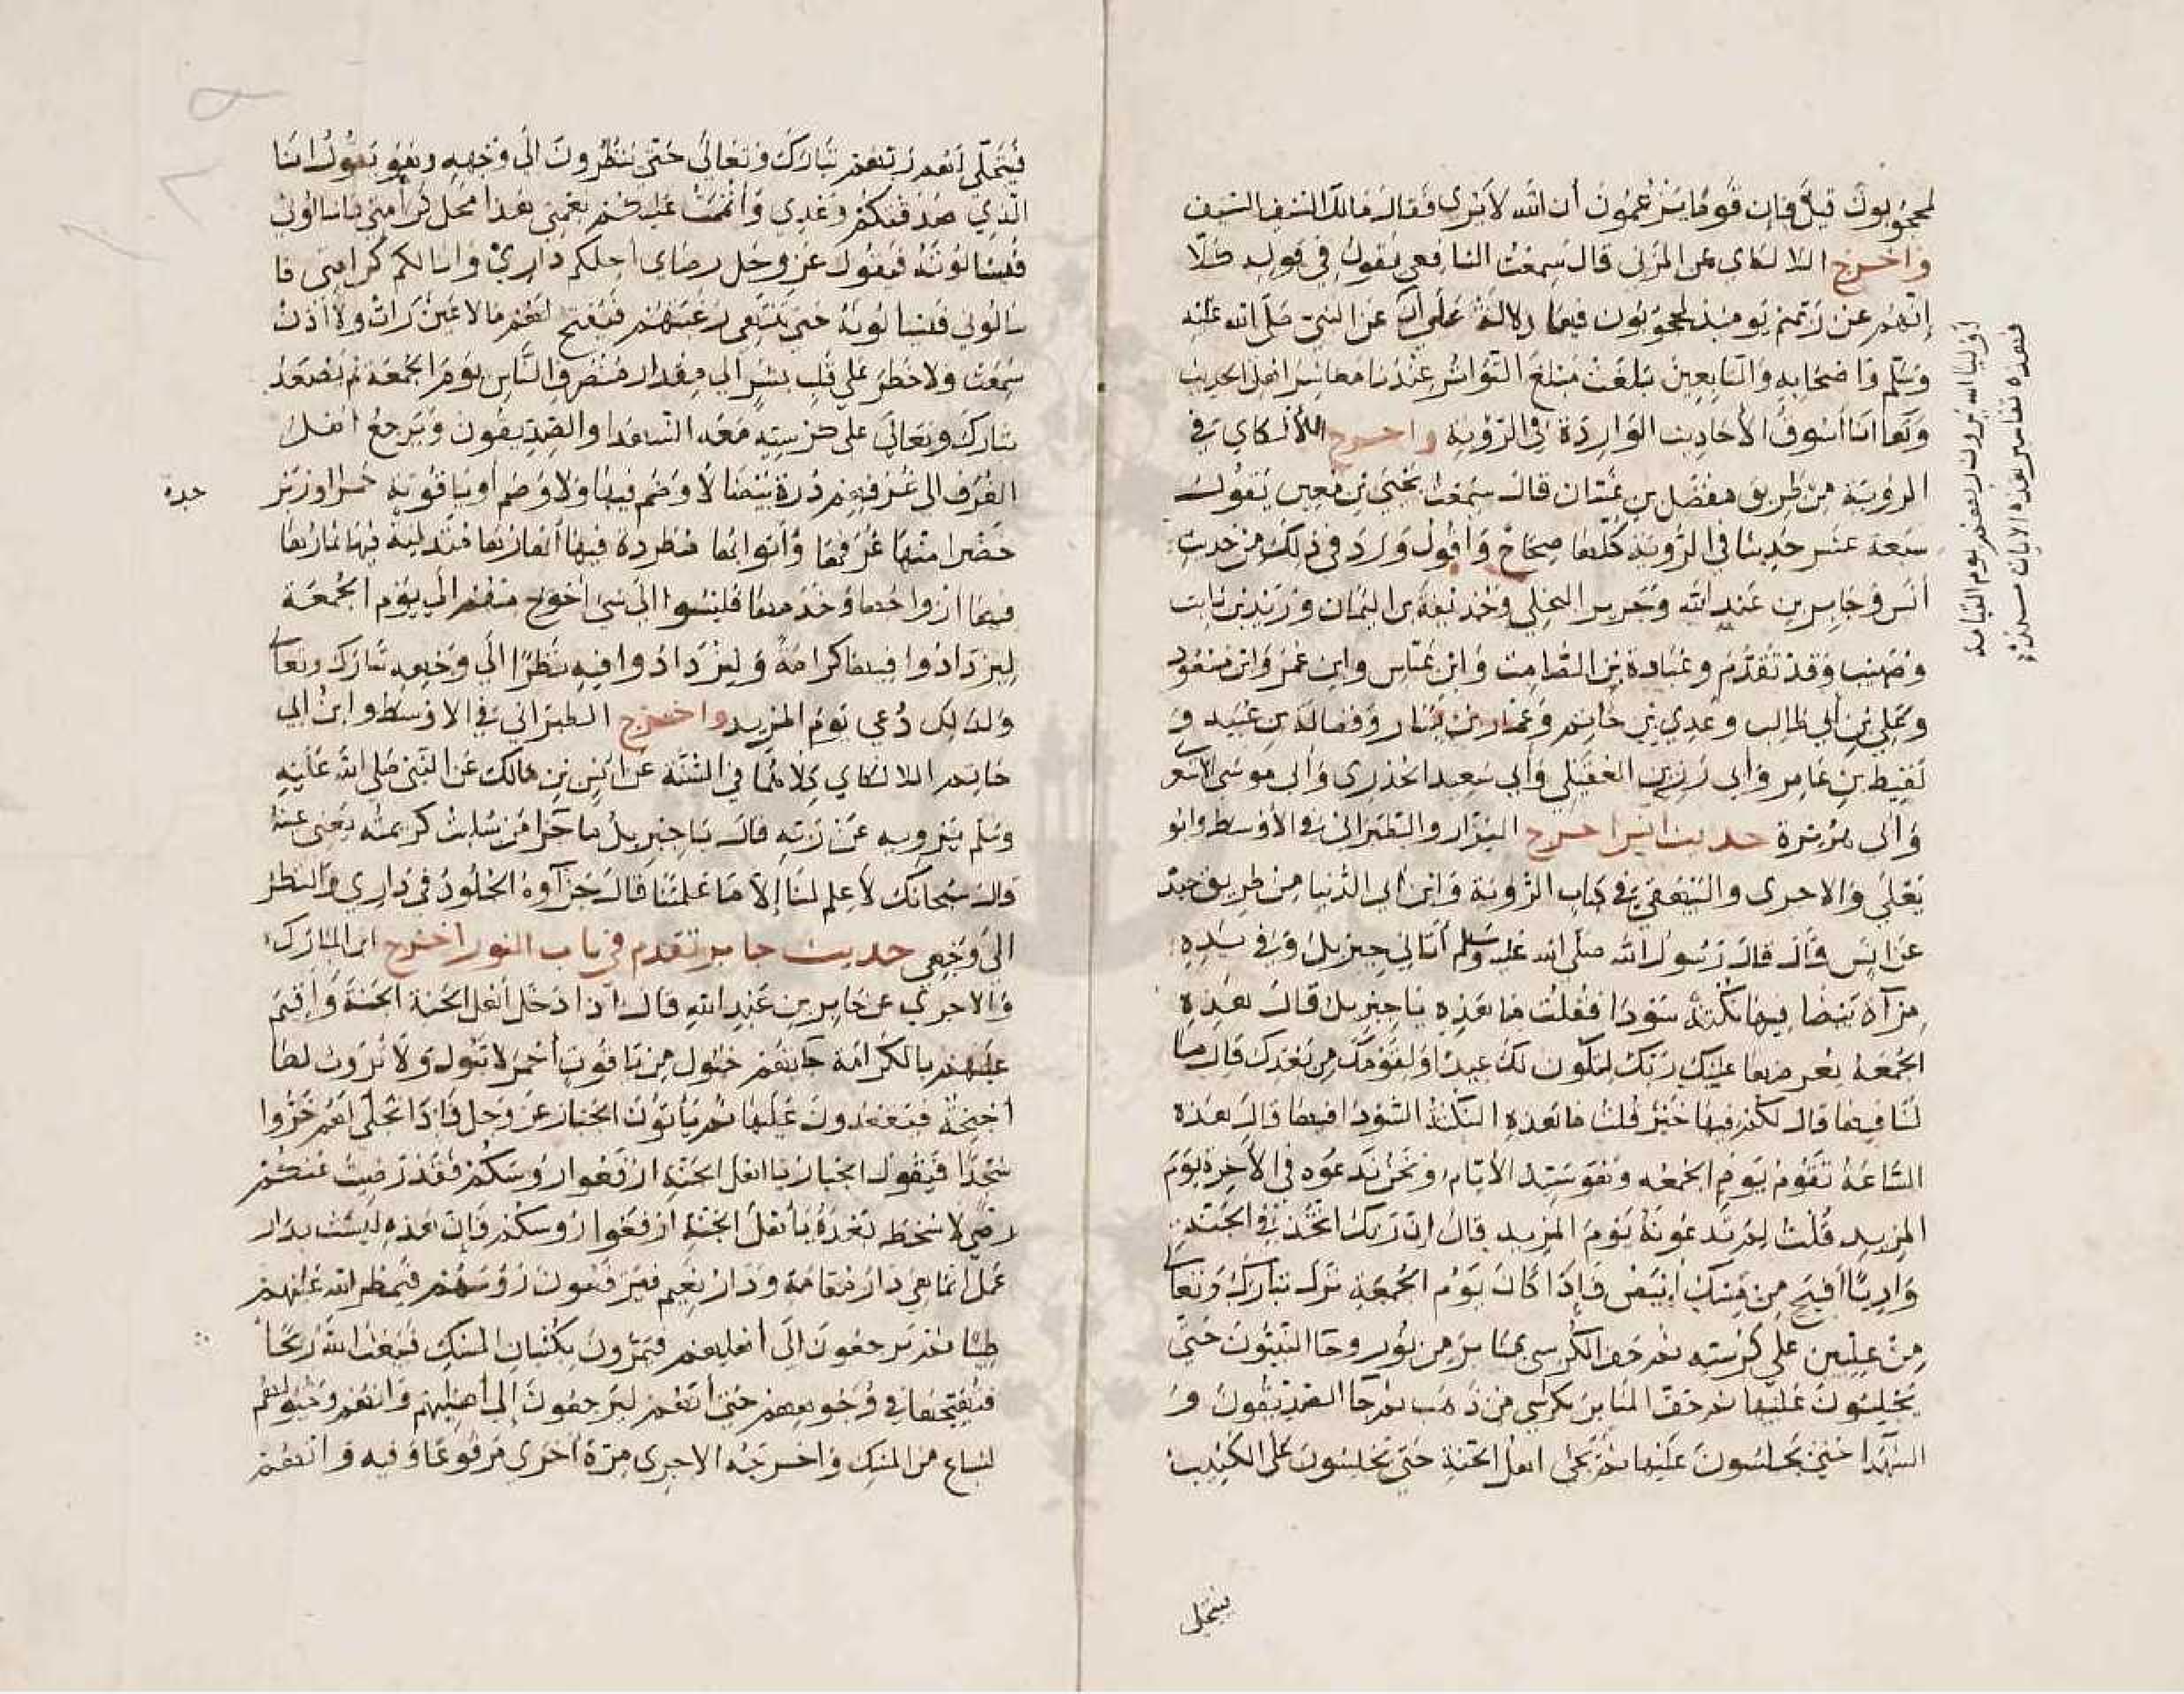 لمحجوبون قيل فإن قوما يزعمون أن الله لا يرى فقال مالك السيف السيف
واخرج اللالكاي عن المزني قال سمعت الشافعي يقول في قوله كلا
إنهم عن ربهم يومئذ لمحجوبون فيها دلالة على أن عن النبي صلى الله عليه
وسلم واصحابه والتابعين بلغت مبلغ التواتر عندنا معاشر اهل الحديث
وها انا أسوق الأحاديث الواردة في الرؤية واخرج اللالكاي في
الروية من طريق مفضل بن غسان قال سمعت يحيى بن معين يقول
سبعة عشر حديثا في الروية كلها صحاح وأقول ورد في ذلك من حديث
أنس وجابر بن عبد الله وجرير البجلي وحذيفة بن اليمان وزيد بن ثابت
وصهيب وقد تقدم وعبادة بن الصامت وابن عباس وابن عمر وابن مسعود
وعلي بن أبي طالب وعدي بن حاتم وعمار بن يسار وفضالة بن عبيد و
لقيط بن عامر وأبي رزين العقيلي وأبي سعيد الخدري وأبي موسى الاشعر
وأبي هريرة حديث انس اخرج البزار والطبراني في الأوسط وابو
يعلى والاجري والبيهقي في كتاب الرؤية وابن ابي الدنيا من طريق جيد
عن انس قال قال رسول الله صلى الله عليه وسلم أتاني جبريل وفي يده
مرآة بيضا فيها نكتة سودا فقلت ما هذه يا جبريل قال هذه
الجمعة يعرضها عليك ربك لتكون لك عيدا ولقومك من بعدك قال ما
لنا فيها قال لكم فيها خير قلت ما هذه النكتة السودا فيها قال هذه
الساعة تقوم يوم الجمعه وهو سيد الأيام ونحن ندعوه في الأخرة يوم
المزيد قلت لم تدعونه يوم المزيد قال إن ربك اتخذ في الجنة
واديا أفيح من مسك أبيض فإذا كان يوم الجمعة نزل تبارك وتعالى
من عليين على كرسيه ثم حف الكرسي بمنابر من نور وجا النبيون حتى
يجلسون عليها ثم حف المنابر بكراسي من ذهب ثم جا الصديقون و
الشهدا حتى يجلسون عليها ثم يجي اهل الجنة حتى يجلسون على الكثيب
فيتجلى
فهذه تفاسير هذه الايات مسندة
أوليا الله يرون ربهم يوم القيامة
فيتجلى لهم ربهم تبارك وتعالى حتى ينظرون الى وجهه وهو يقول انا
الذي صدقتكم وعدي وأتممت عليكم نعمتي هذا محل كرامتي فاسالوني
فيسالونه فيقول عز وجل رضاي احلكم داري وانالكم كرامتي فا
سالوني فيسالونه حتى تنتهي رغبتهم فيفتح لهم ما لا عين رات ولا أذن
سمعت ولا خطر على قلب بشر الى مقدار منصرف الناس يوم الجمعة ثم يصعد
تبارك وتعالى على كرسيه معه الشهدا والصديقون ويرجع اهل
الغرف الى غرفهم درة بيضا لا وصم فيها ولا فصم أو ياقوتة حمرا وزبر
جدة
خضرا منها غرفها وأبوابها مطردة فيها أنهارها متدلية فيها ثمارها
فيها ازواجها وخدمها فليسوا الى شي احوج منهم إلى يوم الجمعة
ليزدادوا فيها كرامة وليزدادوا فيه نظرا الى وجهه تبارك وتعالى
ولذلك دعي يوم المزيد واخرج الطبراني في الاوسط وابن ابي
حاتم واللالكاي كلاهما في السنة عن انس بن مالك عن النبي صلى الله عليه
وسلم يرويه عن ربه قال يا جبريل ما جزا من سلبت كريمته يعني عينيه
قال سبحانك لا علم لنا إلا ما علمتنا قال جزاوه الخلود في داري والنظر
الى وجهي حديث جابر تقدم في باب النور اخرج ابن المبارك
والاجري عن جابر بن عبد الله قال اذا دخل أهل الجنة الجنة وأقيم
عليهم بالكرامة جاءتهم خيول من ياقوت أحمر لا تبول ولا تروث لها
أجنحة فيقعدون عليها ثم يأتون الجبار عز وجل فإذا تجلى لهم خروا
سجدا فيقول الجبار يا اهل الجنة ارفعوا روسكم فقد رضيت عنكم
رضي لا سخط بعده يا أهل الجنة ارفعوا روسكم فإن هذه ليست بدار
عمل انما هي دار مقامة ودار نعيم فيرفعون رؤسهم فيمطر الله عليهم
طيبا ثم يرجعون إلى أهليهم فيمرون بكثبان المسك فيبعث الله ريحا
فتهيجها في وجوههم حتى أنهم ليرجعون إلى أهليهم وانهم وخيولهم
لشباع من المسك واخرجه الاجري مرة أخرى مرفوعا وفيه وانهم